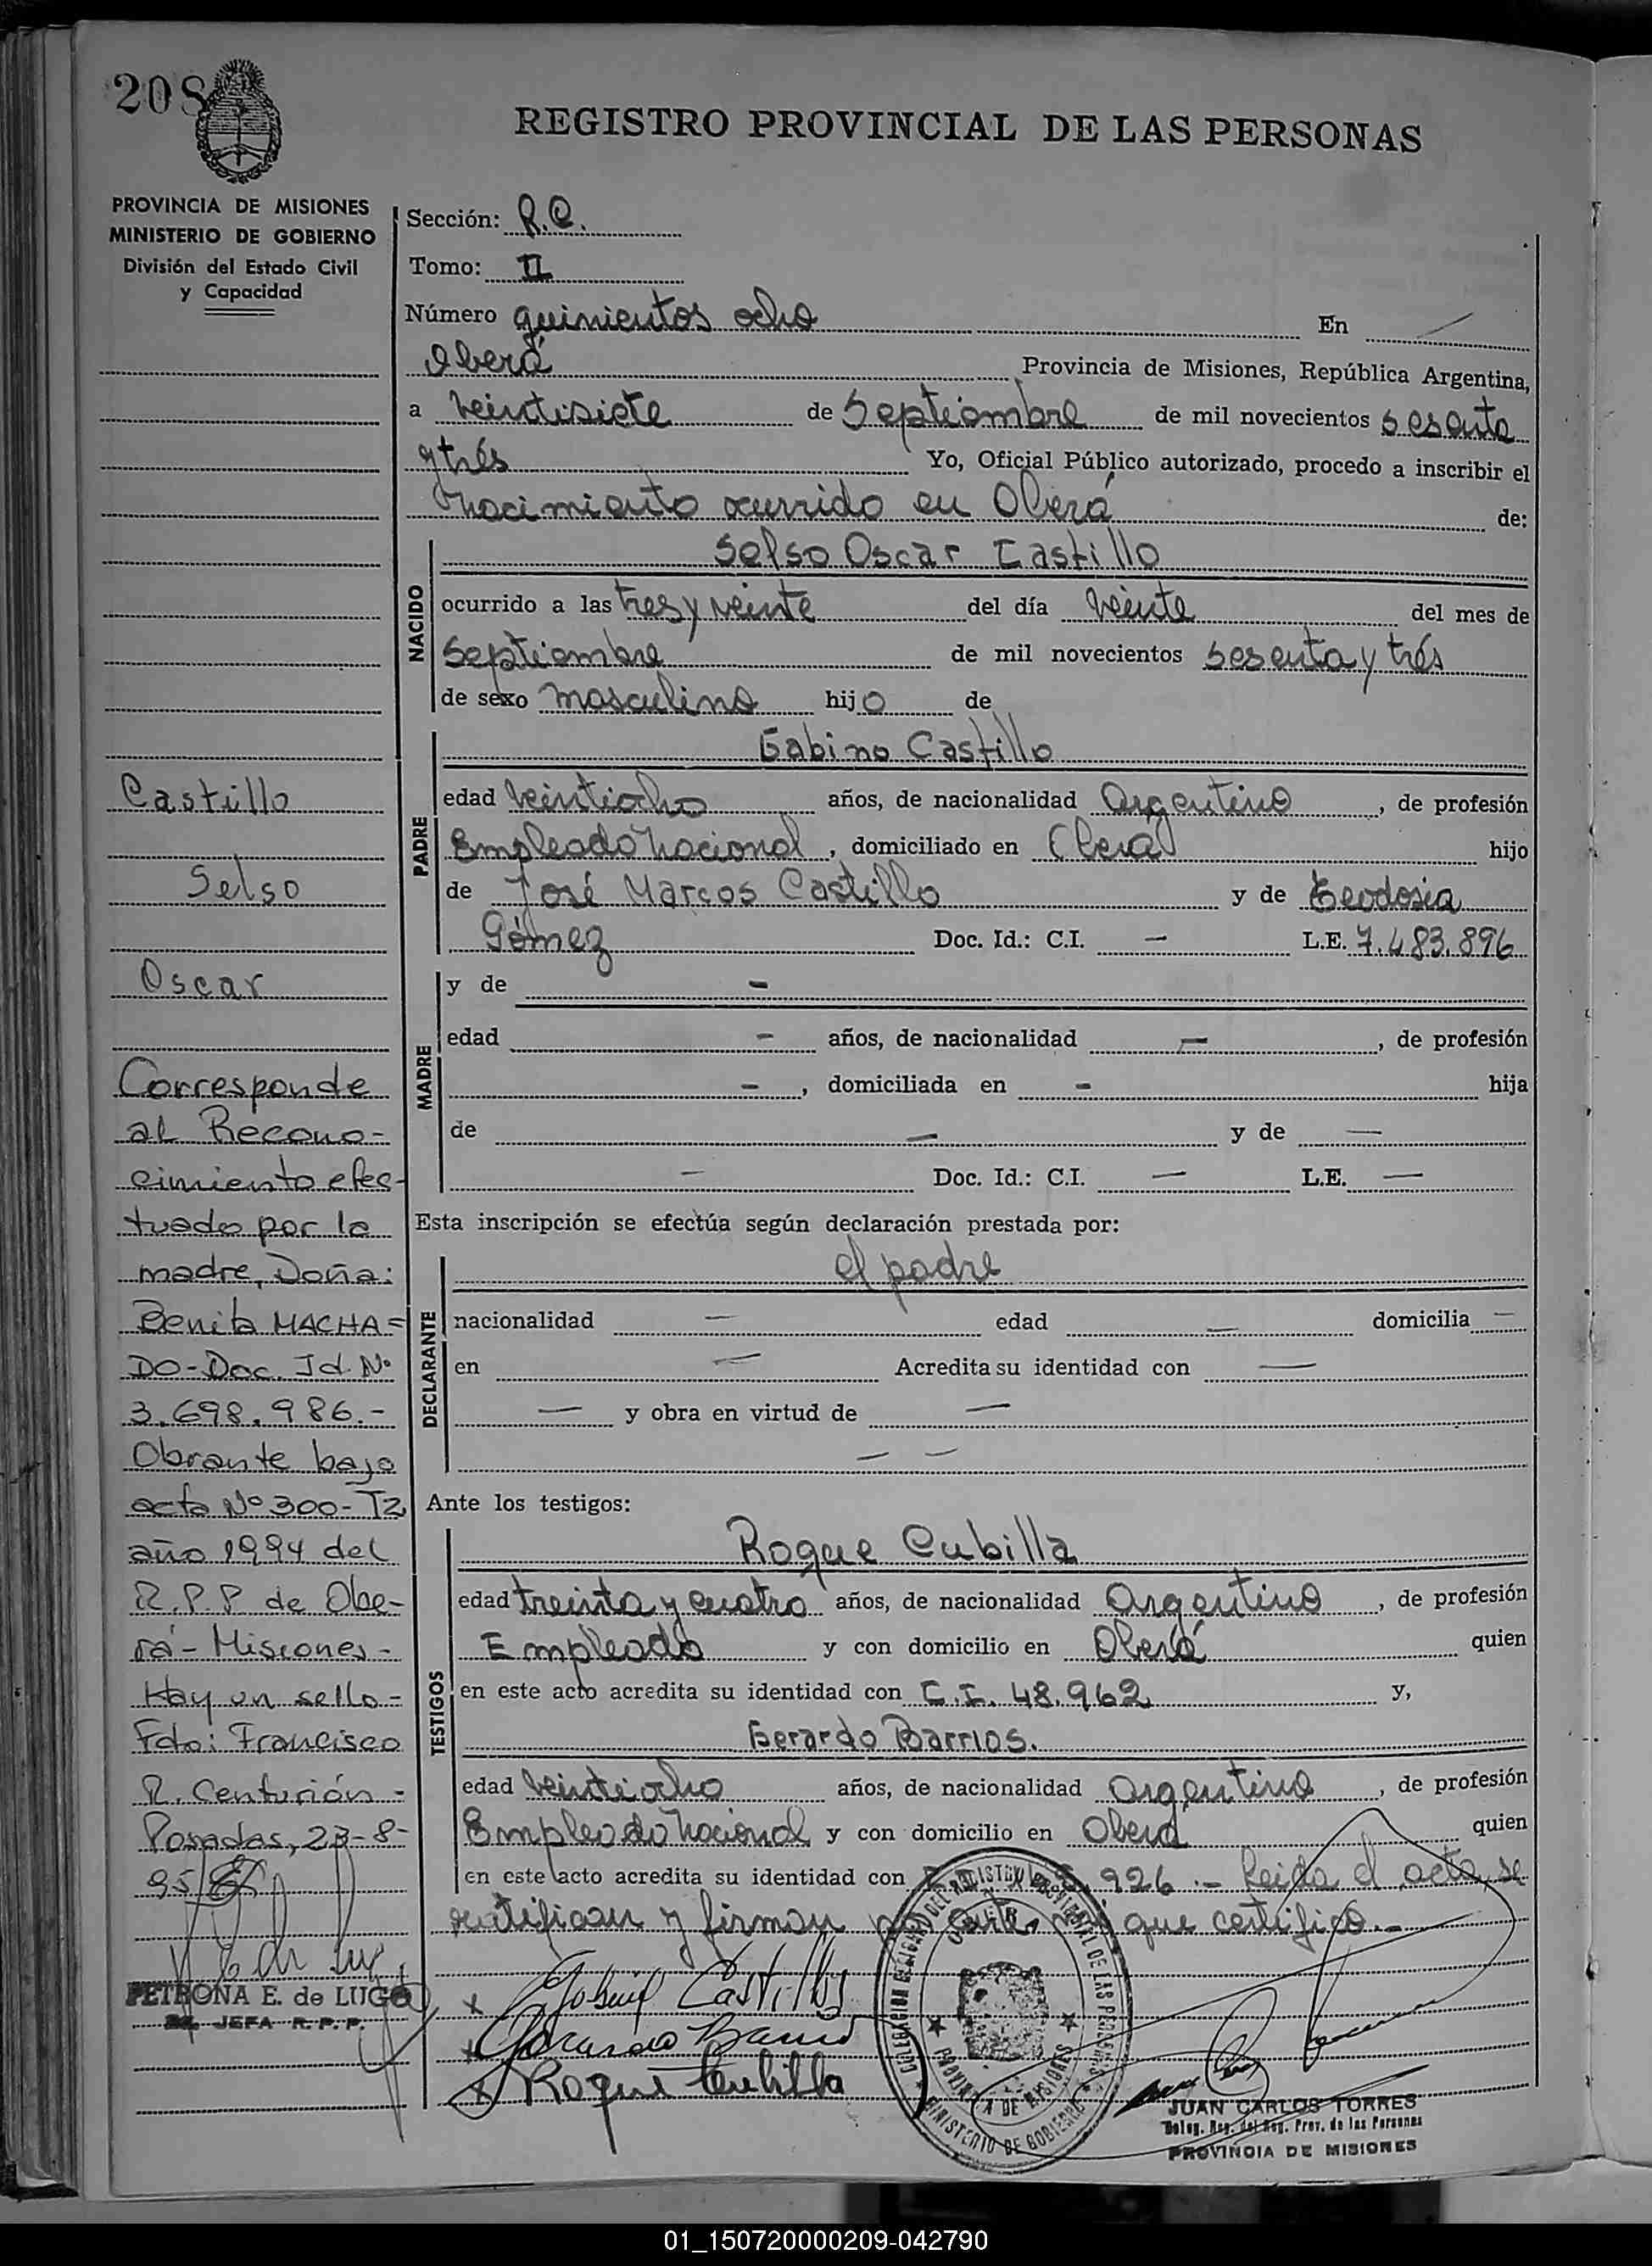 208
REGISTRO PROVINCIAL DE LAS PERSONAS
PROVINCIA DE MISIONES
MINISTERIO DE GOBIERNO
División del Estado Civil
y Capacidad
Castillo
Selso
Oscar
Corresponde
al Recono-
cimiento efec-
tuado por la
madre, Doña:
Benita MACHA=
DO-Doc. Id. Nº
3.698.986.-
Obrante bajo
acta Nº 300-T2
año 1994 del
R.P.P de Obe-
rá-Misiones-
Hay un sello-
Fdo: Francisco
R. Centurión-
Posadas, 23-8-
95
PETRONA E. de LUGO
JEFA R.P.P.
Sección: R.C.
Tomo: II
Número quinientos ocho En
Oberá Provincia de Misiones, República Argentina,
a veintisiete de Septiembre de mil novecientos sesenta
y trés Yo, Oficial Público autorizado, procedo a inscribir el
nacimiento ocurrido en Oberá de:
NACIDO
Selso Oscar Castillo
ocurrido a las tres y veinte del día veinte del mes de
Septiembre de mil novecientos sesenta y trés
de sexo masculino hijo de
PADRE
Gabino Castillo
edad veintiocho años, de nacionalidad Argentino, de profesión
Empleado Nacional, domiciliado en Oberá hijo
de José Marcos Castillo y de Teodosia
Gómez Doc. Id.: C.I. — L.E. 7.483.896
MADRE
y de -
edad - años, de nacionalidad —, de profesión
-, domiciliada en - hija
de — y de —
— Doc. Id.: C.I. — L.E. —
Esta inscripción se efectúa según declaración prestada por:
DECLARANTE
el padre
nacionalidad — edad — domicilia —
en — Acredita su identidad con —
— y obra en virtud de —
— —
Ante los testigos:
TESTIGOS
Roque Cubilla
edad treinta y cuatro años, de nacionalidad Argentino, de profesión
Empleado y con domicilio en Oberá quien
en este acto acredita su identidad con C.I. 48.962 y,
Gerardo Barrios.
edad veintiocho años, de nacionalidad Argentino, de profesión
Empleado Nacional y con domicilio en Oberá quien
en este acto acredita su identidad con 926.- Leida el acta, se
ratifican y firman que certifico.-
Gabino Castillo
Gerardo Barrios
Roque Cubilla
DELEGACION DEL REGISTRO PROVINCIAL DE LAS PERSONAS
OBERA
PROVINCIA DE MISIONES
MINISTERIO DE GOBIERNO
JUAN CARLOS TORRES
Deleg. Reg. del Reg. Prov. de las Personas
PROVINCIA DE MISIONES
01_150720000209-042790